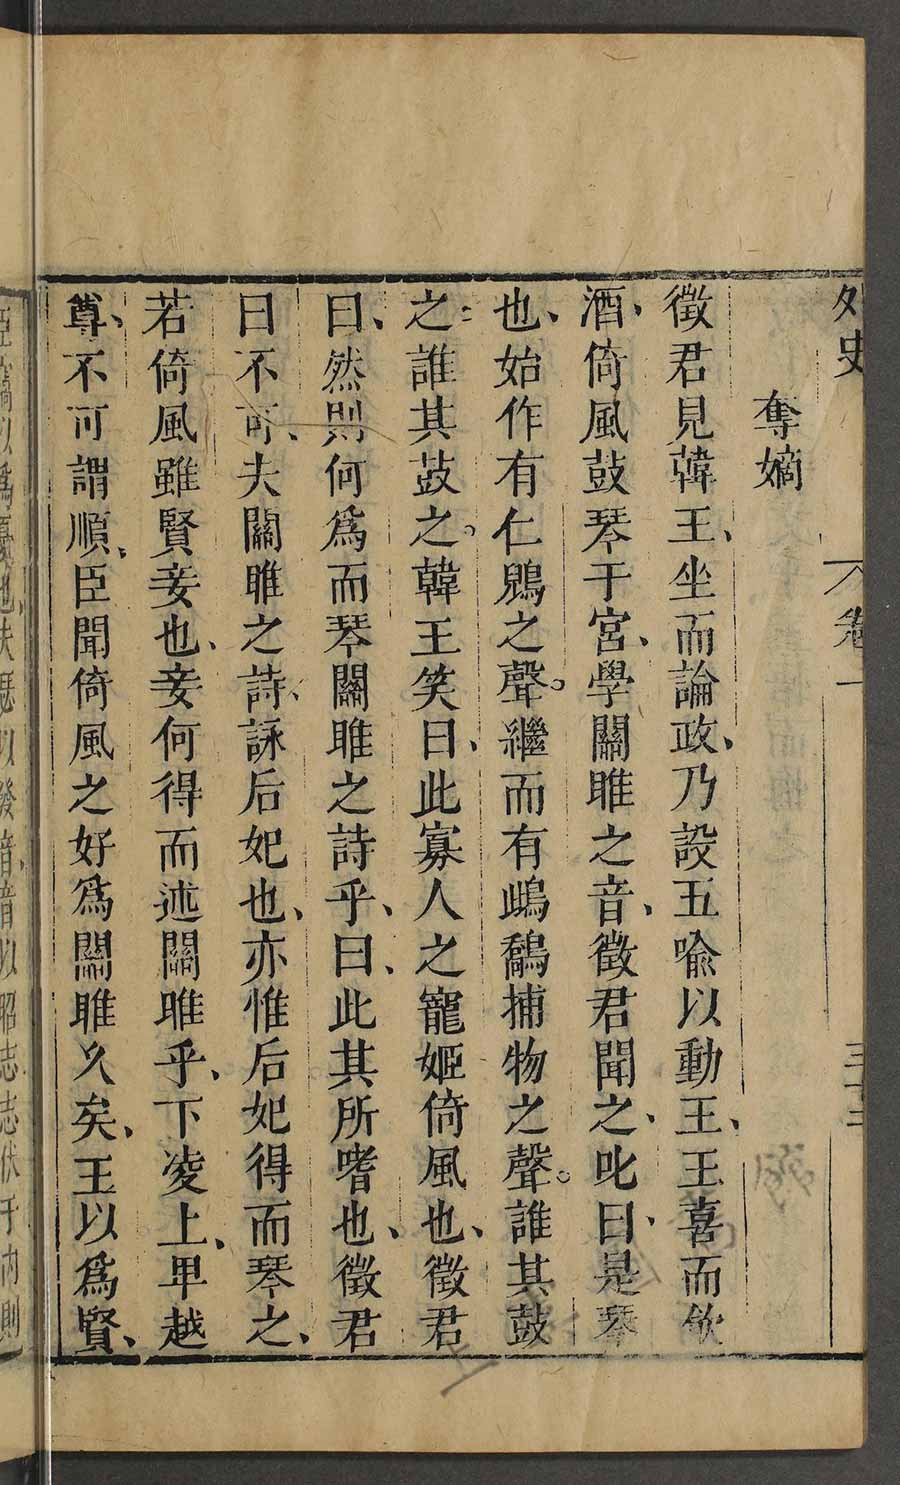 外史 卷一 三十三
奪嫡
徵君見韓王、坐而論政、乃設五喻以動王、王喜而飲
酒、倚風鼓琴于宮、學關雎之音、徵君聞之、叱曰、是琴
也、始作有仁鵾之聲。繼而有鴟鷸捕物之聲。誰其鼓
之誰其鼓之。韓王笑曰、此寡人之寵姬倚風也、徵君
曰、然則何爲而琴關雎之詩乎、曰、此其所嗜也、徵君
曰不可、夫關雎之詩、詠后妃也、亦惟后妃得而琴之、
若倚風雖賢妾也、妾何得而述關雎乎、下凌上、卑越
尊、不可謂順、臣聞倚風之好爲關雎久矣、王以爲賢、